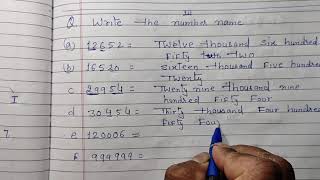 Q Write the number name
(a) 12652 = Twelve thousand six hundred
fifty two
(b) 16520 = Sixteen thousand five hundred
Twenty
c 29954 = Twenty nine thousand nine
hundred fifty four
I
d 30454 = Thirty thousand four hundred
fifty four
7
e 120006 =
f 999999 =